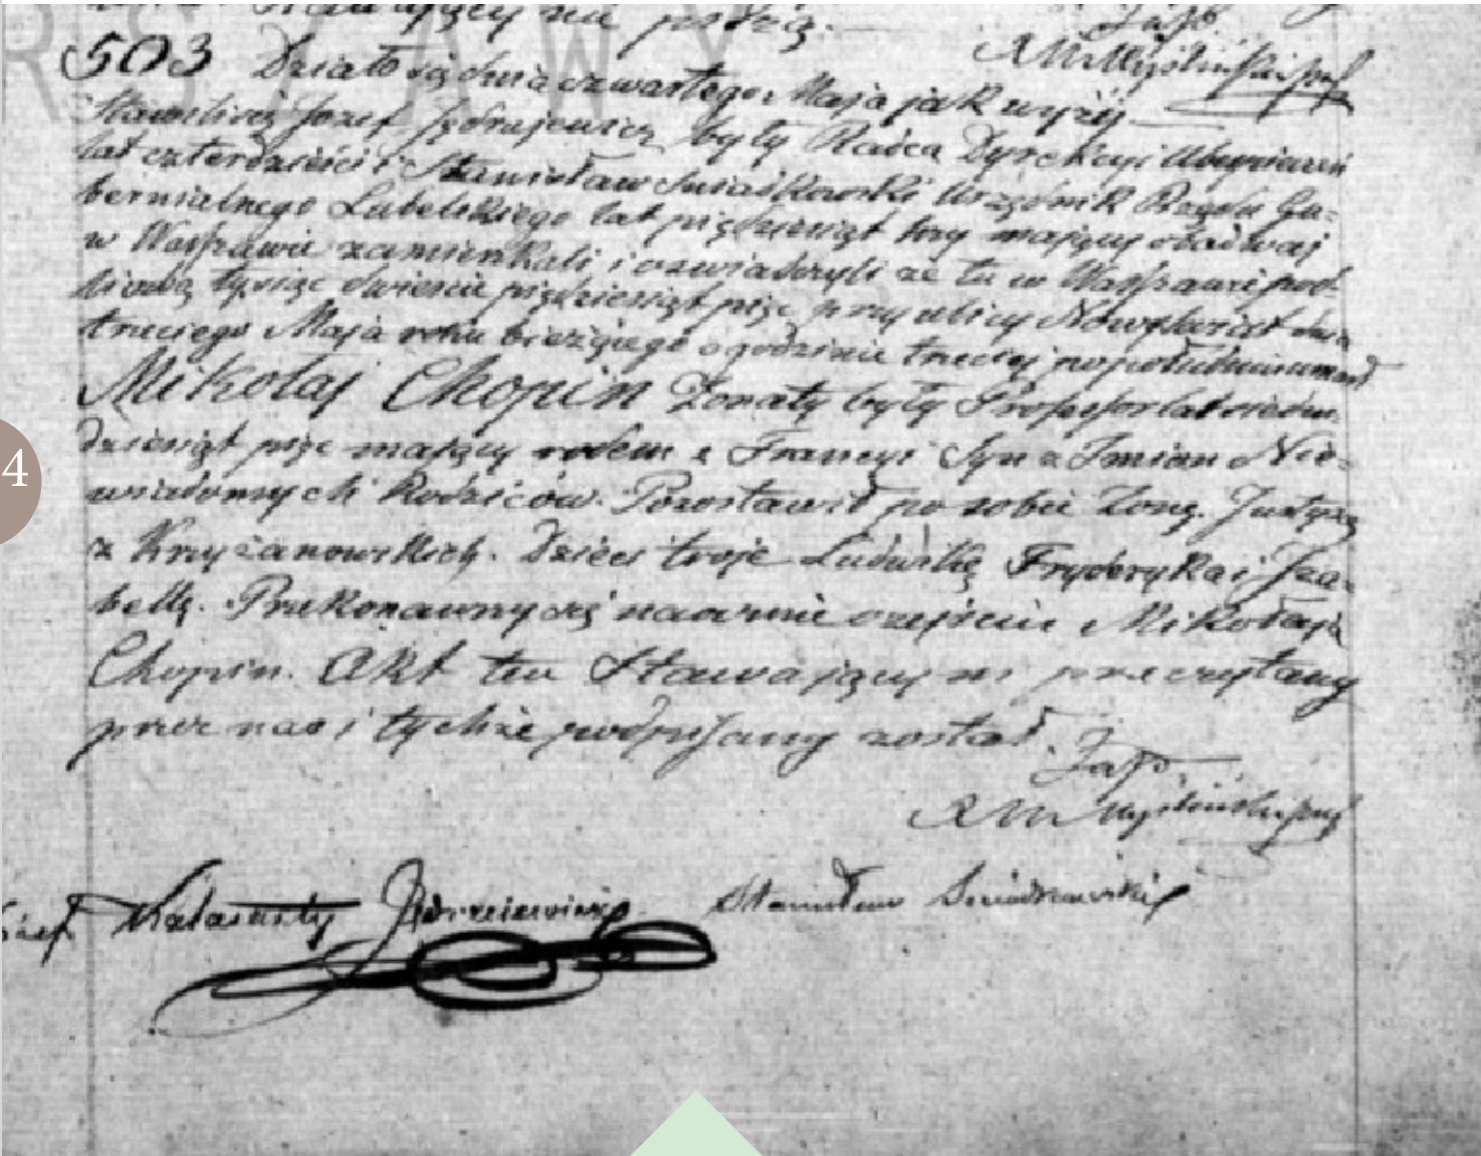 503 Działo się dnia czwartego Maja jak wyżej
Stawili się Jozef Jędrzejewicz były Radca Dyrekcyi Ubezpieczeń
lat czterdzieści i Stanisław Swiatkowski Urzędnik Rządu Gu-
bernialnego Lubelskiego lat pięćdziesiąt trzy mający obadwaj
w Warszawie zamieszkali, i oswiadczyli że tu w Warszawie pod
liczbą tysiąc dwieście pięćdziesiąt pięć przy ulicy Nowyswiat dnia
trzeciego Maja roku bieżącego o godzinie trzeciej popołudniu umarł
Mikołaj Chopin Żonaty były Professor lat siedm-
dziesiąt pięć mający rodem z Francyi Syn z Imion Nie-
wiadomych Rodziców. Pozostawił po sobie Żonę Justynę
z Krzyżanowskich. Dzieci troje Ludwikę Fryderyka i Iza-
bellę. Przekonawszy się naocznie o zejściu Mikołaja
Chopin. Akt ten Stawającym przeczytany
przez nas i tychże podpisany został.
Kalasanty Jędrzeiewicz Stanisław